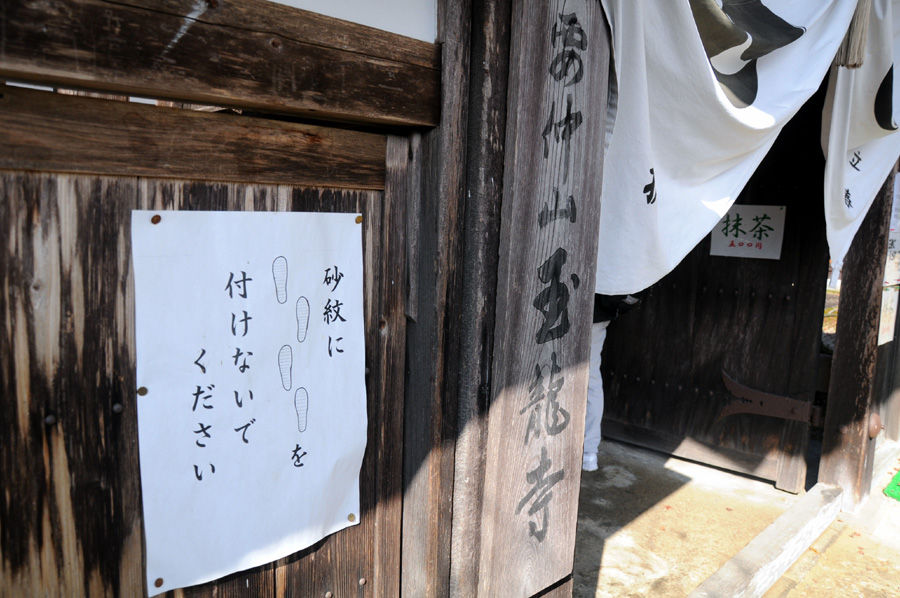 砂紋に
を
付けないで
ください
仲山玉龍寺
抹茶
五〇〇円